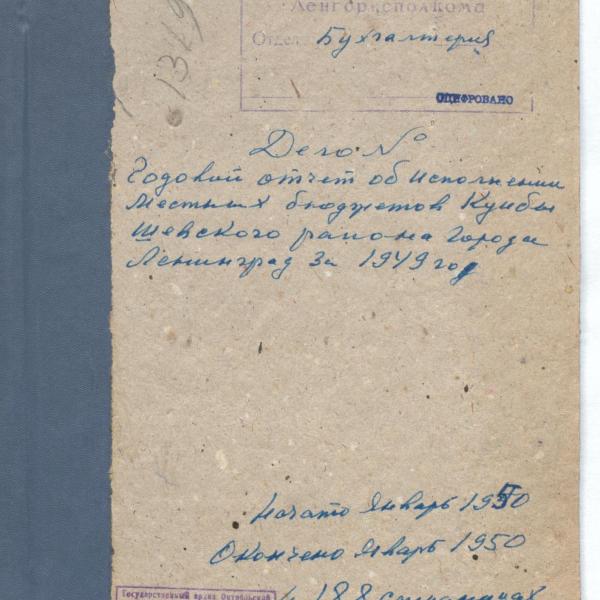 1349
Ленгорисполкома
Отдел Бухгалтерия
ОЦИФРОВАНО
Дело №
Годовой отчет об исполнении
местных бюджетов Куйбы
шевского района города
Ленинград за 1949 год
Начато Январь 1950
Окончено Январь 1950
188 страницах
Государственный архив Октябрьской